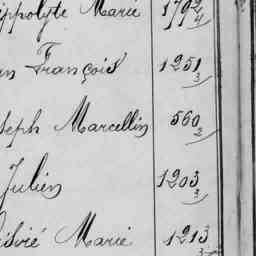 ippolyte Marie 1792 4
n François 1251 3
seph Marcellin 560 2
Julien 1203 3
ésiré Marie 1213 3